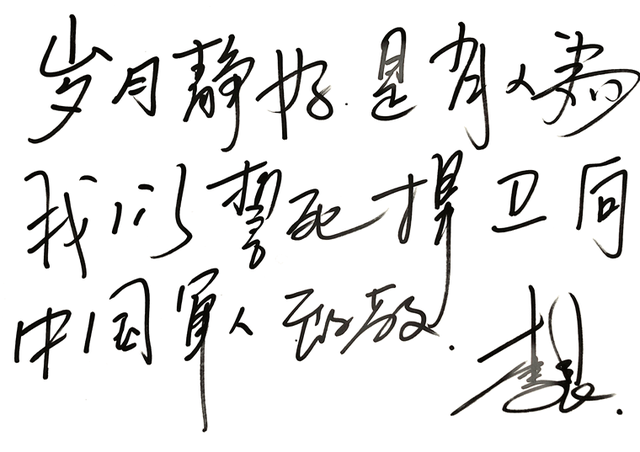 岁月静好.是有人為
我们誓死捍卫向
中国軍人致敬.